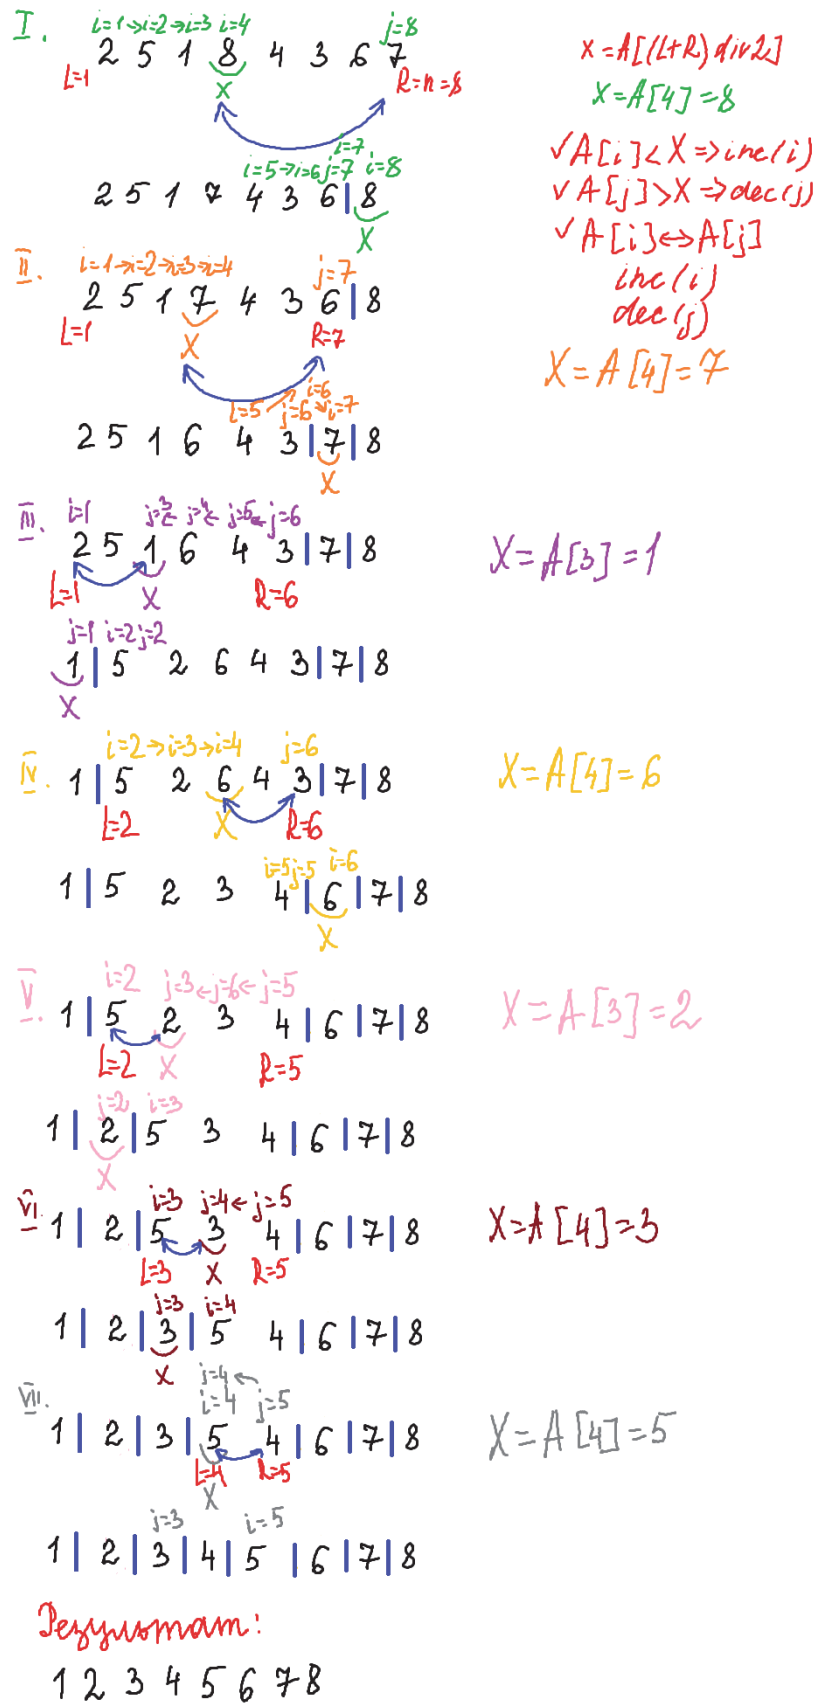 I. i=1→i=2→i=3 i=4 j=8
2 5 1 8 4 3 6 7
L=1 X R=n=8
X=A[(L+R) div 2]
X=A[4]=8
√A[i]<X=>inc(i)
√A[j]>X=>dec(j)
√A[i]↔A[j]
inc(i)
dec(j)
i=7
i=5→i=6 j=7 i=8
2 5 1 7 4 3 6|8
X
II. i=1→i=2→i=3→i=4 j=7
2 5 1 7 4 3 6|8
L=1 X R=7
X=A[4]=7
i=6
i=5 j=6 i=7
2 5 1 6 4 3|7|8
X
III. i=1 j=3← j=4← j=5← j=6
2 5 1 6 4 3|7|8
L=1 X R=6
X=A[3]=1
j=1 i=2 j=2
1|5 2 6 4 3|7|8
X
IV. i=2→i=3→i=4 j=6
1|5 2 6 4 3|7|8
L=2 X R=6
X=A[4]=6
i=5 j=5 i=6
1|5 2 3 4|6|7|8
X
V. i=2 j=3←j=6←j=5
1|5 2 3 4|6|7|8
L=2 X R=5
X=A[3]=2
j=2 i=3
1|2|5 3 4|6|7|8
X
VI. i=3 j=4←j=5
1|2|5 3 4|6|7|8
L=3 X R=5
X=A[4]=3
j=3 i=4
1|2|3|5 4|6|7|8
X
VII. j=4←
i=4 j=5
1|2|3|5 4|6|7|8
L=4 R=5
X
X=A[4]=5
j=3 i=5
1|2|3|4|5|6|7|8
Результат:
1 2 3 4 5 6 7 8